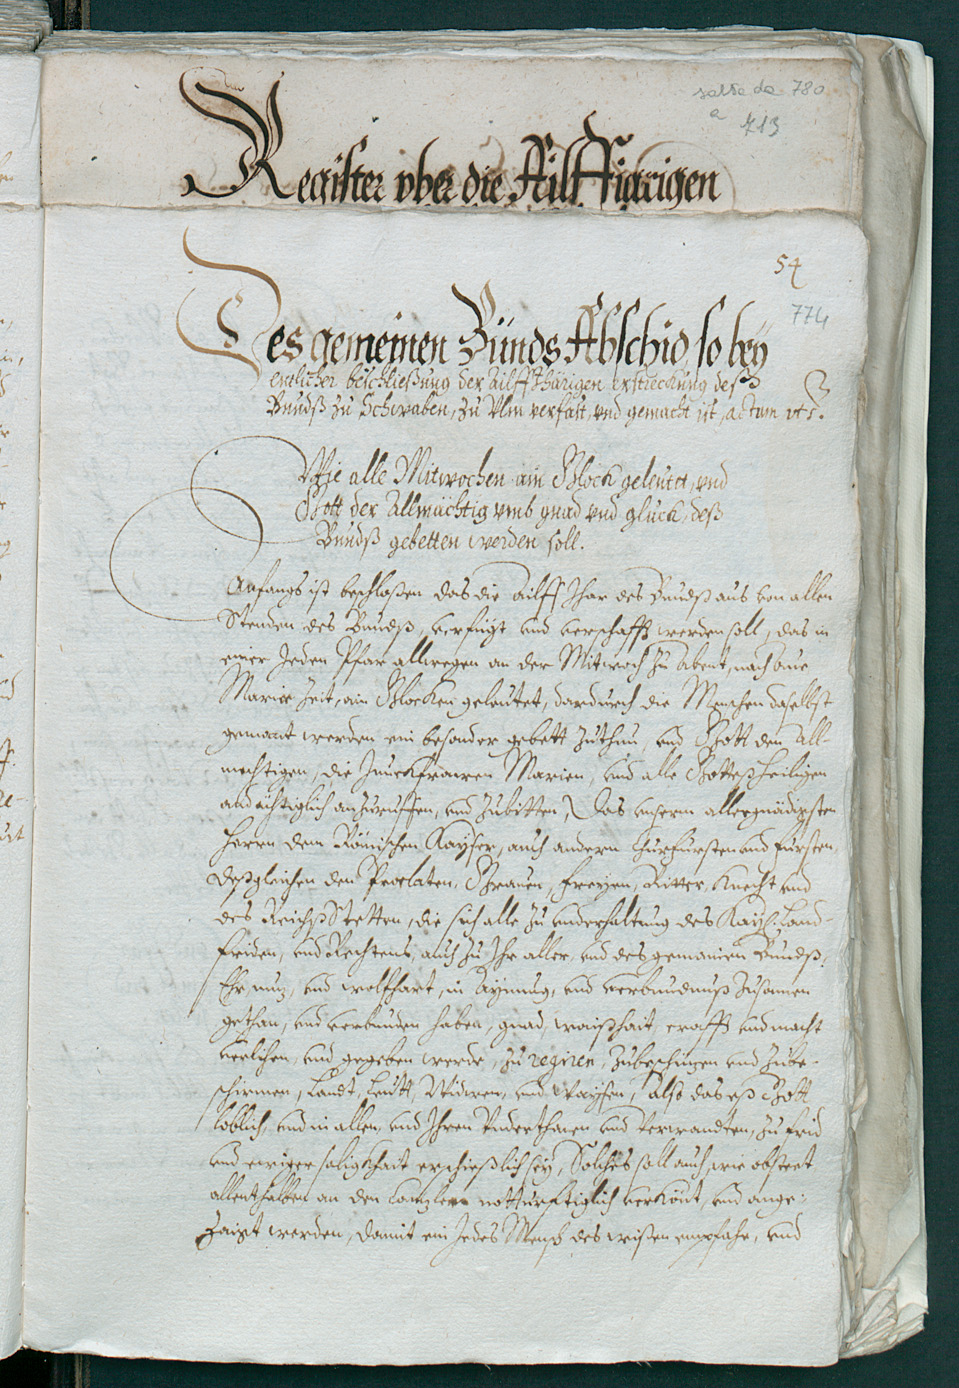 salta da 780
a 713
Register vber die Ailffjarigen
54
774
Des gemeinen Bünds Abschid, so bey
entlicher beschließung der Ailff Jhärigen erstreckung deß
Bundß zu Schwaben, zu Vlm verfast, vnd gemacht ist, actum vts.
Wie alle Mitwochen ain Glock geleutet, vnd
Gott der Allmächtig vmb gnad vnd gluck, deß
Bundß gebetten werden soll.
Anfangs ist beschlossen das die ailff Jhar des Bundß aus von allen
Stenden des Bundß, verfügt vnd verschafft werden soll, das in
einer Jeden Pfar allwegen an der Mitwoch zu Abent, nach Aue
Mariae Zeit, ain Glocken geleutet, dardurch die Menschen daselbst
gemant werden ein besonder gebett zuthun, vnd Gott den All-
mechtigen, die Junckfrawen Marien, vnd alle Gottes Heiligen
andechtiglich anzuruffen, vnd zubitten, Das vnserm allergnädigsten
Herrn dem Römischen Kayser, auch andern Churfursten vnd fursten,
deßgleichen den Praelaten, Grauen, freyen, Ritter, Knecht vnd
des Reichß Stetten, die sich alle zu vnderhaltung des Kayß: Land-
friden, vnd Rechtens, auch zu Ihr aller, vnd des gemainen Bundß,
Ehr, nuz, vnd wolfhart, in Aynung, vnd verbundnuß zusamen
gethan, vnd verbunden haben, gnad, weißhait, crafft vnd macht
verlihen, vnd gegeben werde, zu regiren, zubeschuzen vnd zube-
schirmen, Landt, Leutt, Widwen, vnd Waysen, also das es Gott
loblich, vnd in allen, vnd Ihren Vnderthanen vnd Verwandten, zu frid
vnd ewiger saligkhait erschießlich sey, Solches soll auch, wie obsteet
allenthalben an den Canzlen notturfftiglich verkönt, vnd ange-
zaigt werden, damit ein Jedes Mensch des wissen empfahe, vnd